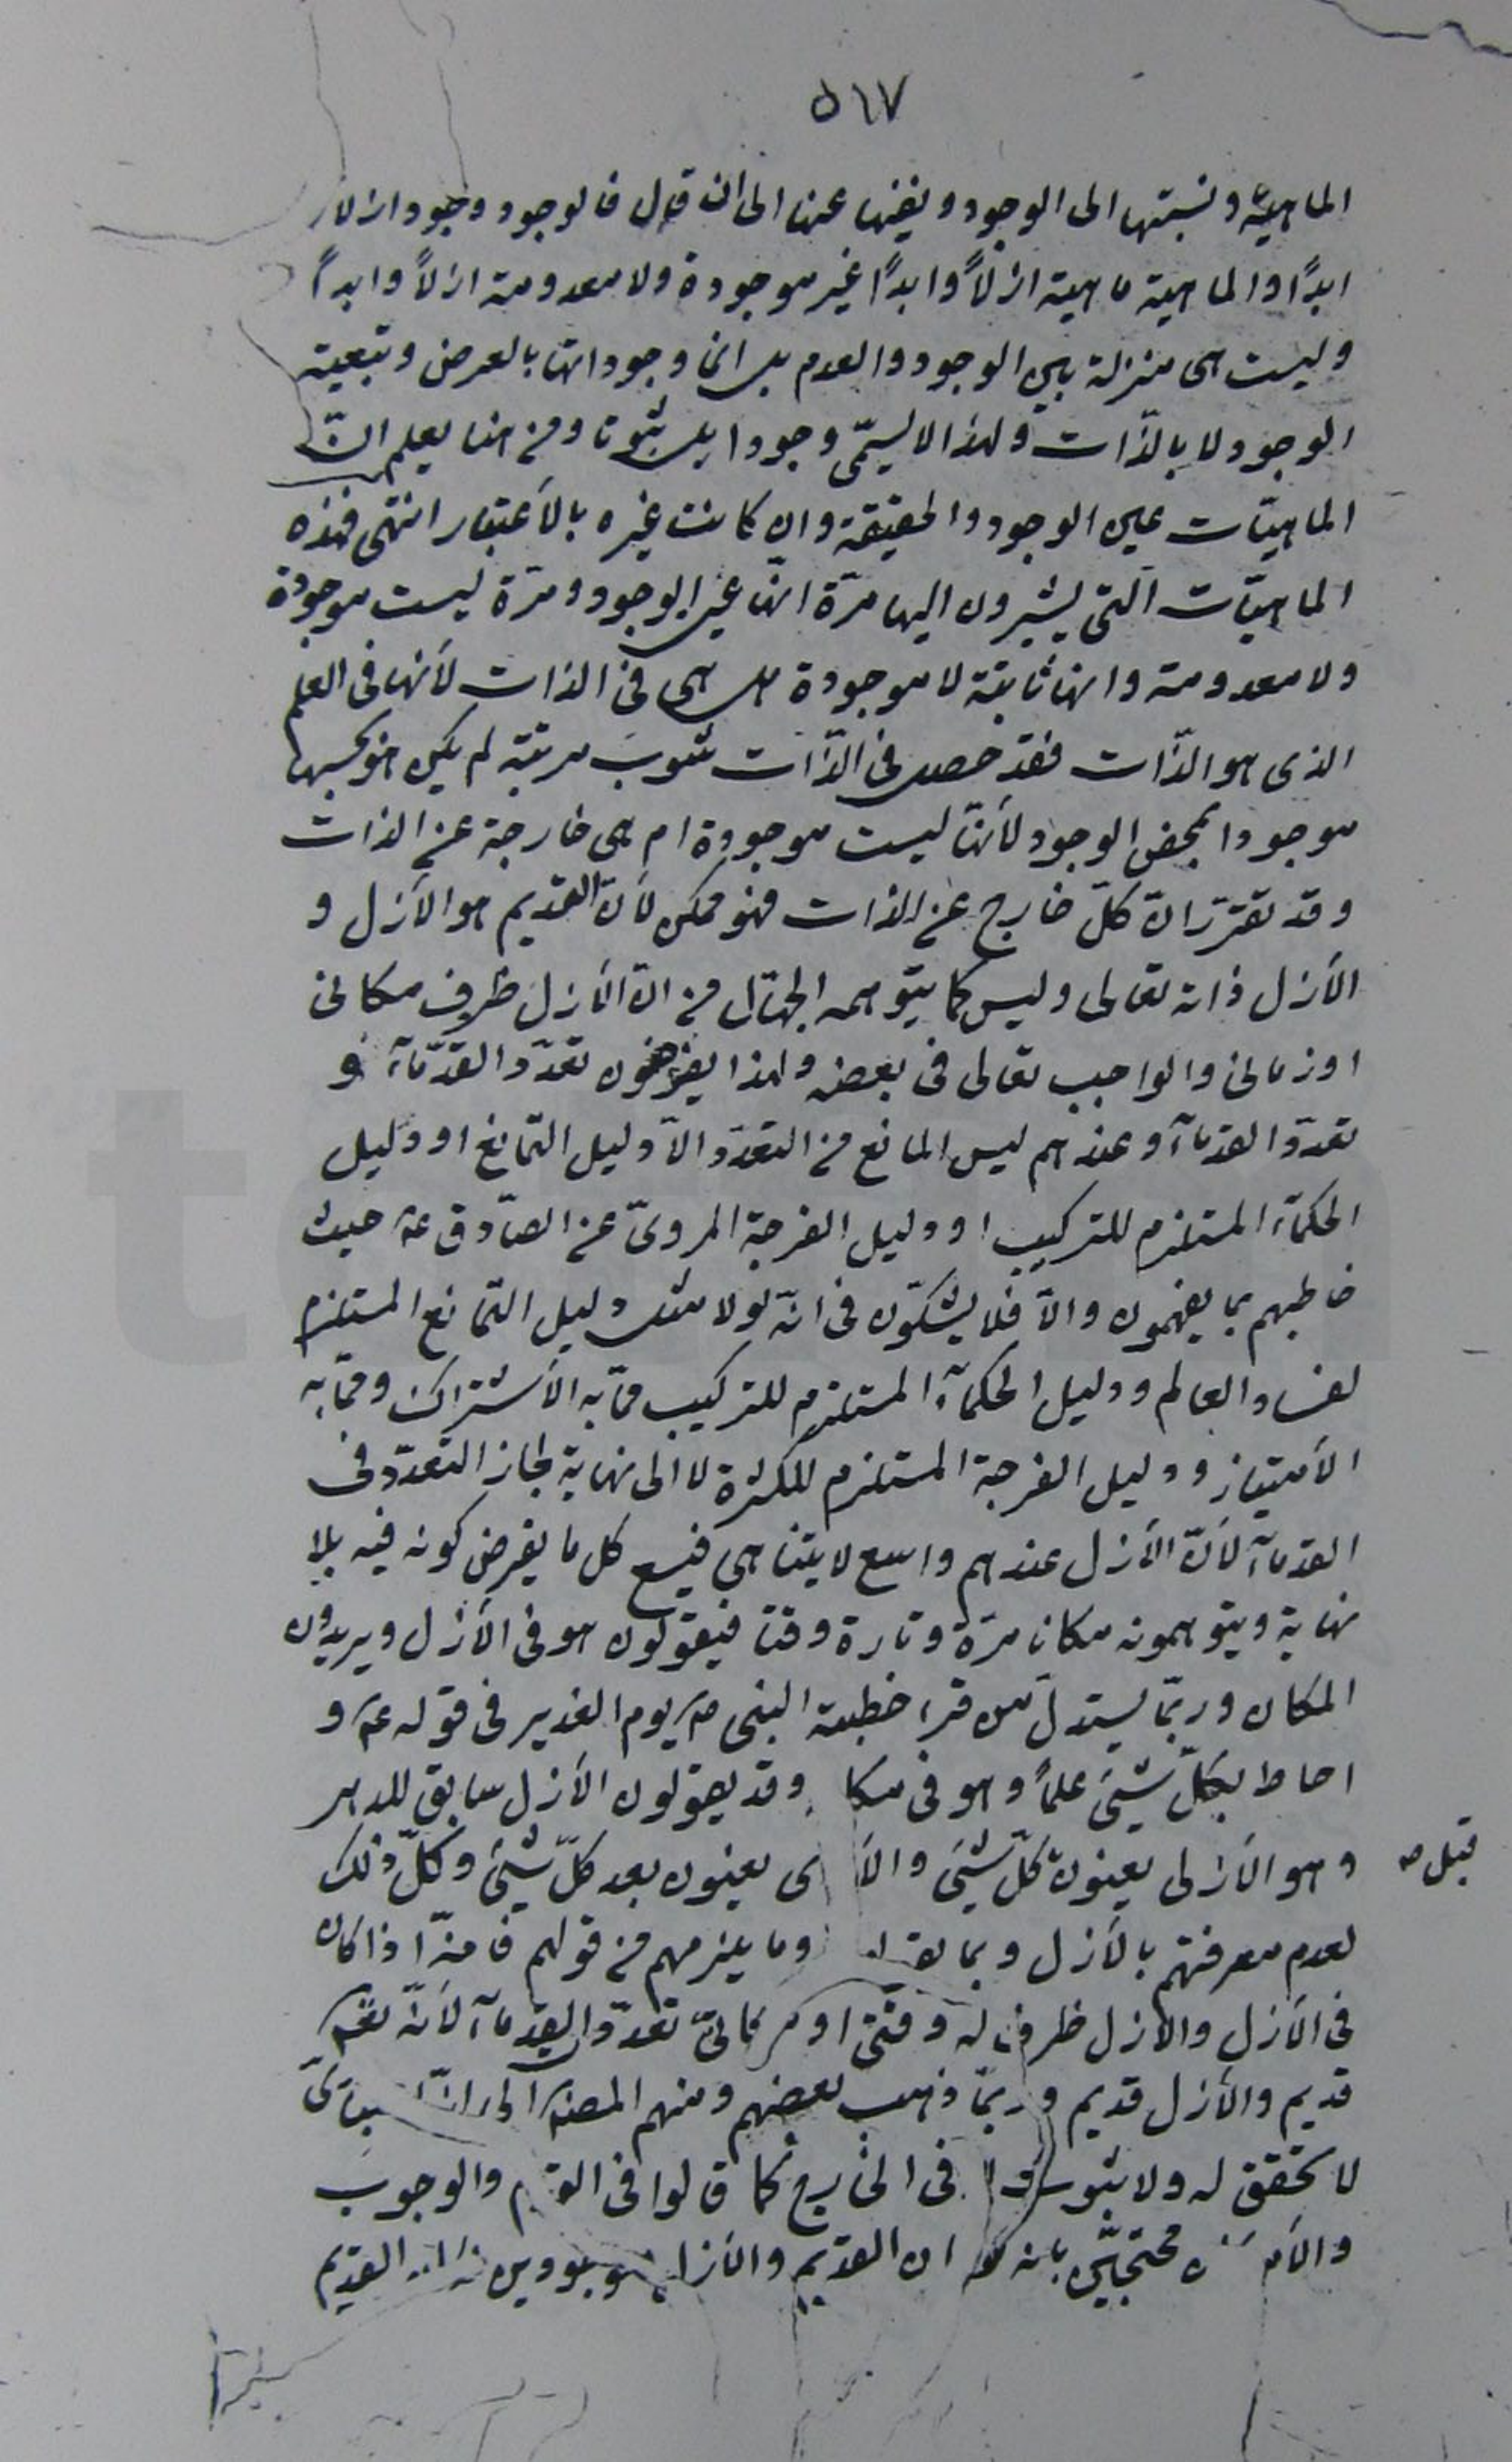 ٥١٧
الماهية ونسبتها الى الوجود ونفيها عنها الى ان قال فالوجود وجود ازلا و
ابدًا والماهية ماهية ازلاً وابدًا غير موجودة ولا معدومة ازلاً وابداً
وليست هى منزلة بين الوجود والعدم بل انما وجوداتها بالعرض وتبعية
الوجود لا بالذّات ولهذا لا يسمّى وجودا بل ثبوتا ومن هنا يعلم انّ
الماهيّات عين الوجود والحقيقة وان كانت غيره بالأعتبار انتهى فهذه
الماهيّات الّتى يشيرون اليها مرّة انّها عين الوجود ومرّة ليست موجودة
ولا معدومة وانها ثابتة لا موجودة هل هى فى الذات لأنها فى العلم
الذى هو الذّات فقد حصل فى الذّات ثبوت مرتبة لم يكن هو بحسبها
موجودا بمحض الوجود لأنّها ليست موجودة ام هى خارجة عن الذات
وقد تقرّر انّ كلّ خارج عن الذات فهو ممكن لأنّ القديم هو الأزل و
الأزل ذاته تعالى وليس كما يتوهمه الجهّال من انّ الأزل ظرف مكانى
او زمانى والواجب تعالى فى بعضه ولهذا يفرضون تعدّد القدمآء و
تعدّد القدمآء وعندهم ليس المانع من التعدّد الاّ دليل التّمانع او دليل
الحكمآء المستلزم للتركيب او دليل الفرجة المروىّ عن الصّادق ع حيث
خاطبهم بما يفهمون والاّ فلا يشكّون فى انّه لولا مثل دليل التّمانع المستلزم
لفساد العالم ودليل الحكمآء المستلزم للتركيب ممّا به الأشتراك وممّا به
الأمتياز ودليل الفرجة المستلزم للكثرة لا الى نهاية لجاز التعدّد فى
القدمآء لأنّ الأزل عندهم واسع لا يتناهى فيسع كل ما يفرض كونه فيه بلا
نهاية ويتوهمونه مكانا مرّة وتارة وقتا فيقولون هو فى الأزل ويريدون
المكان وربّما يستدلّ من قرء خطبة النبى ص يوم الغدير فى قوله ع و
احاط بكلّ شيئ علماً وهو فى مكا وقد يقولون الأزل سابق للدهر
وهو الأزلى يعنون كلّ شيئ والأ يعنون بعد كلّ شيئ وكلّ ذلك
قبل ص
لعدم معرفتهم بالأزل وبما وما يلزمهم من قولهم فانّه اذا كان
فى الأزل والأزل ظرف له وقتىّ او مكانىّ تعدّد القدمآء لأنّه تعم
قديم والأزل قديم وربّما ذهب بعضهم ومنهم المصنف الى انّ
لا تحقق له ولا ثبوت فى الخارج كما قالوا فى القدم والوجوب
والأمكان محتجّين بانه لو كان القديم والأزل موجودين القديم